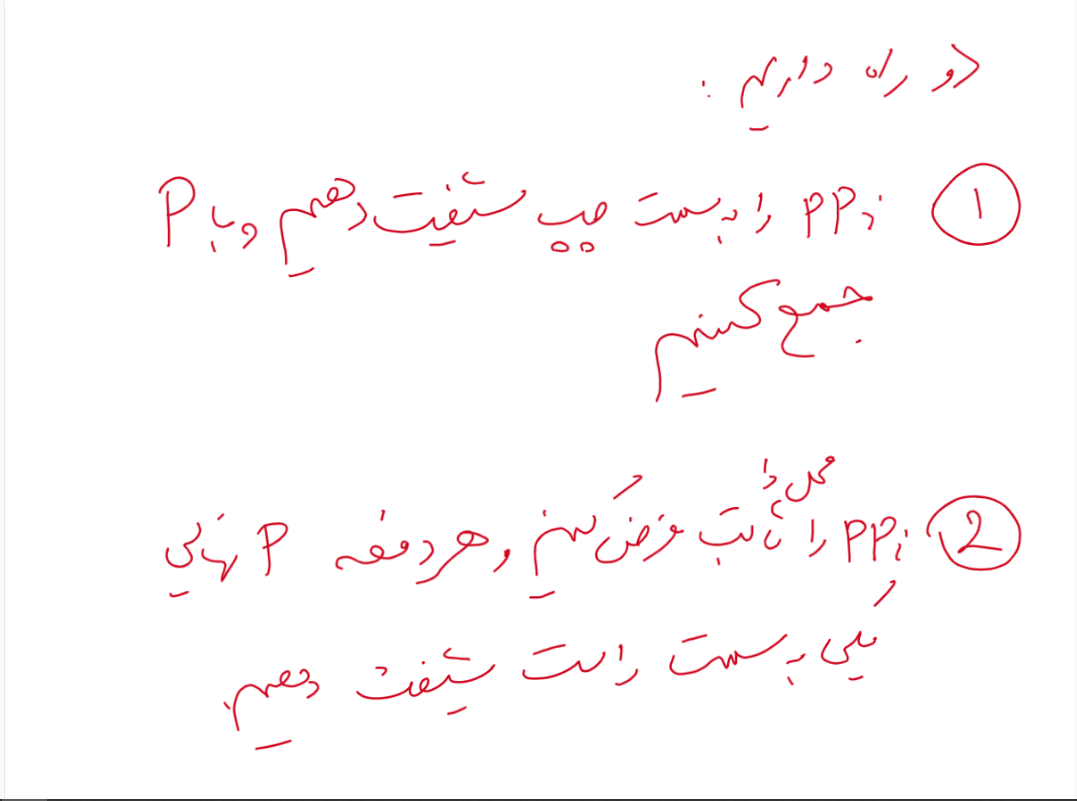 دو راه داریم :
① PPi را به سمت چپ شیفت دهیم و با P
جمع کنیم
② PPi را ثابت فرض کنیم و هر دفعه P نهایی
یکی به سمت راست شیفت دهیم